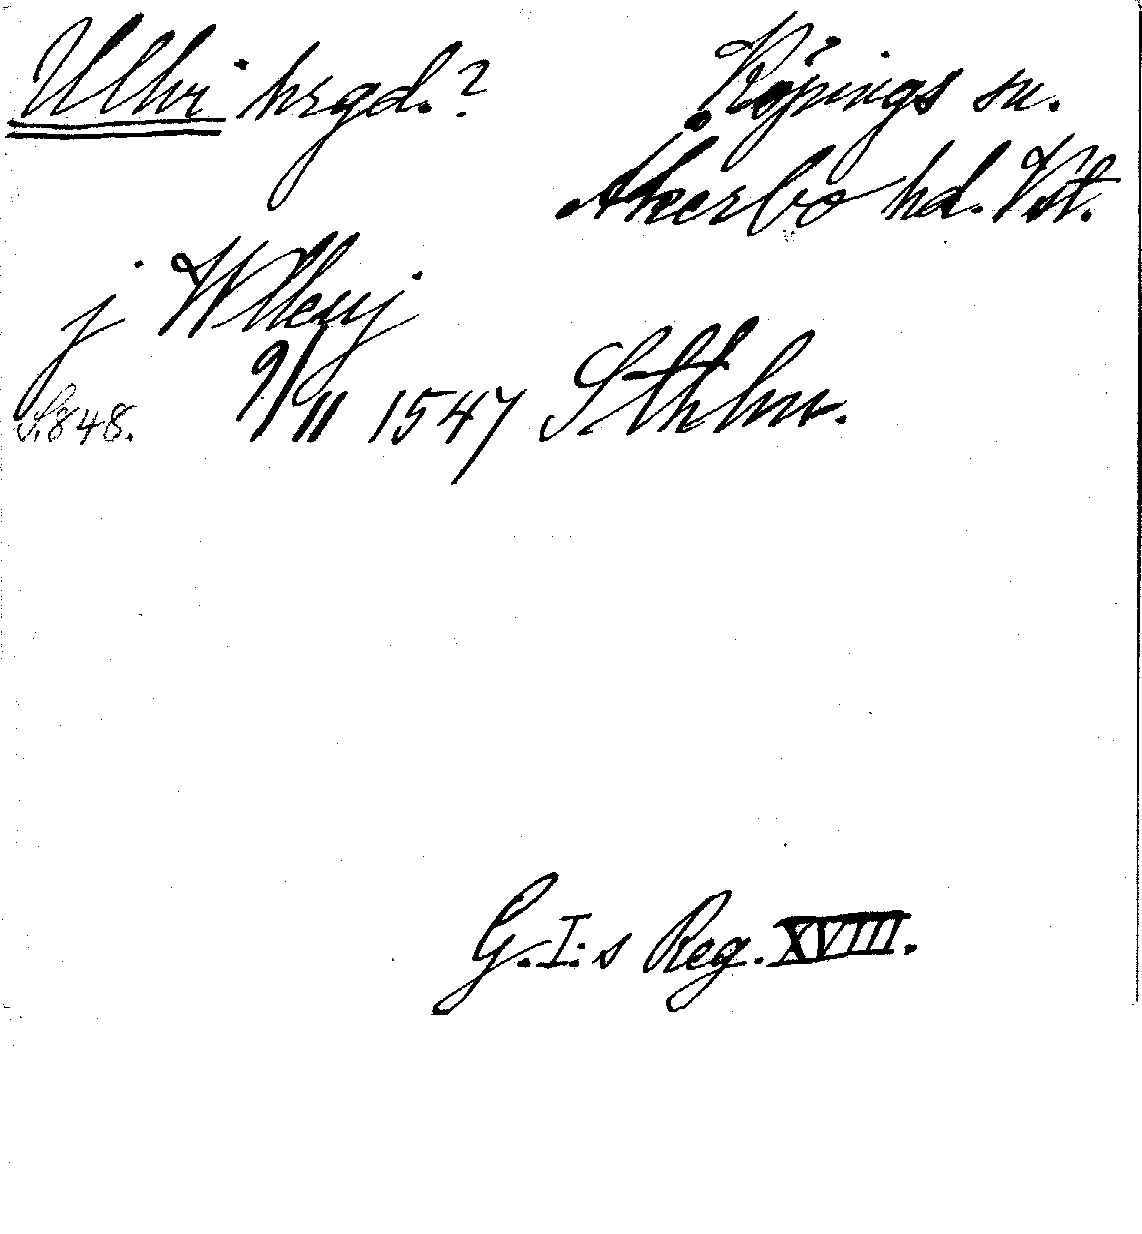 Ullvi hrgd.?
Köpings sn.
Åkerbo hd. Vst.
j Wlleuj
S.848. 9/11 1547 Sthlm.
G.I:s Reg. XVIII.